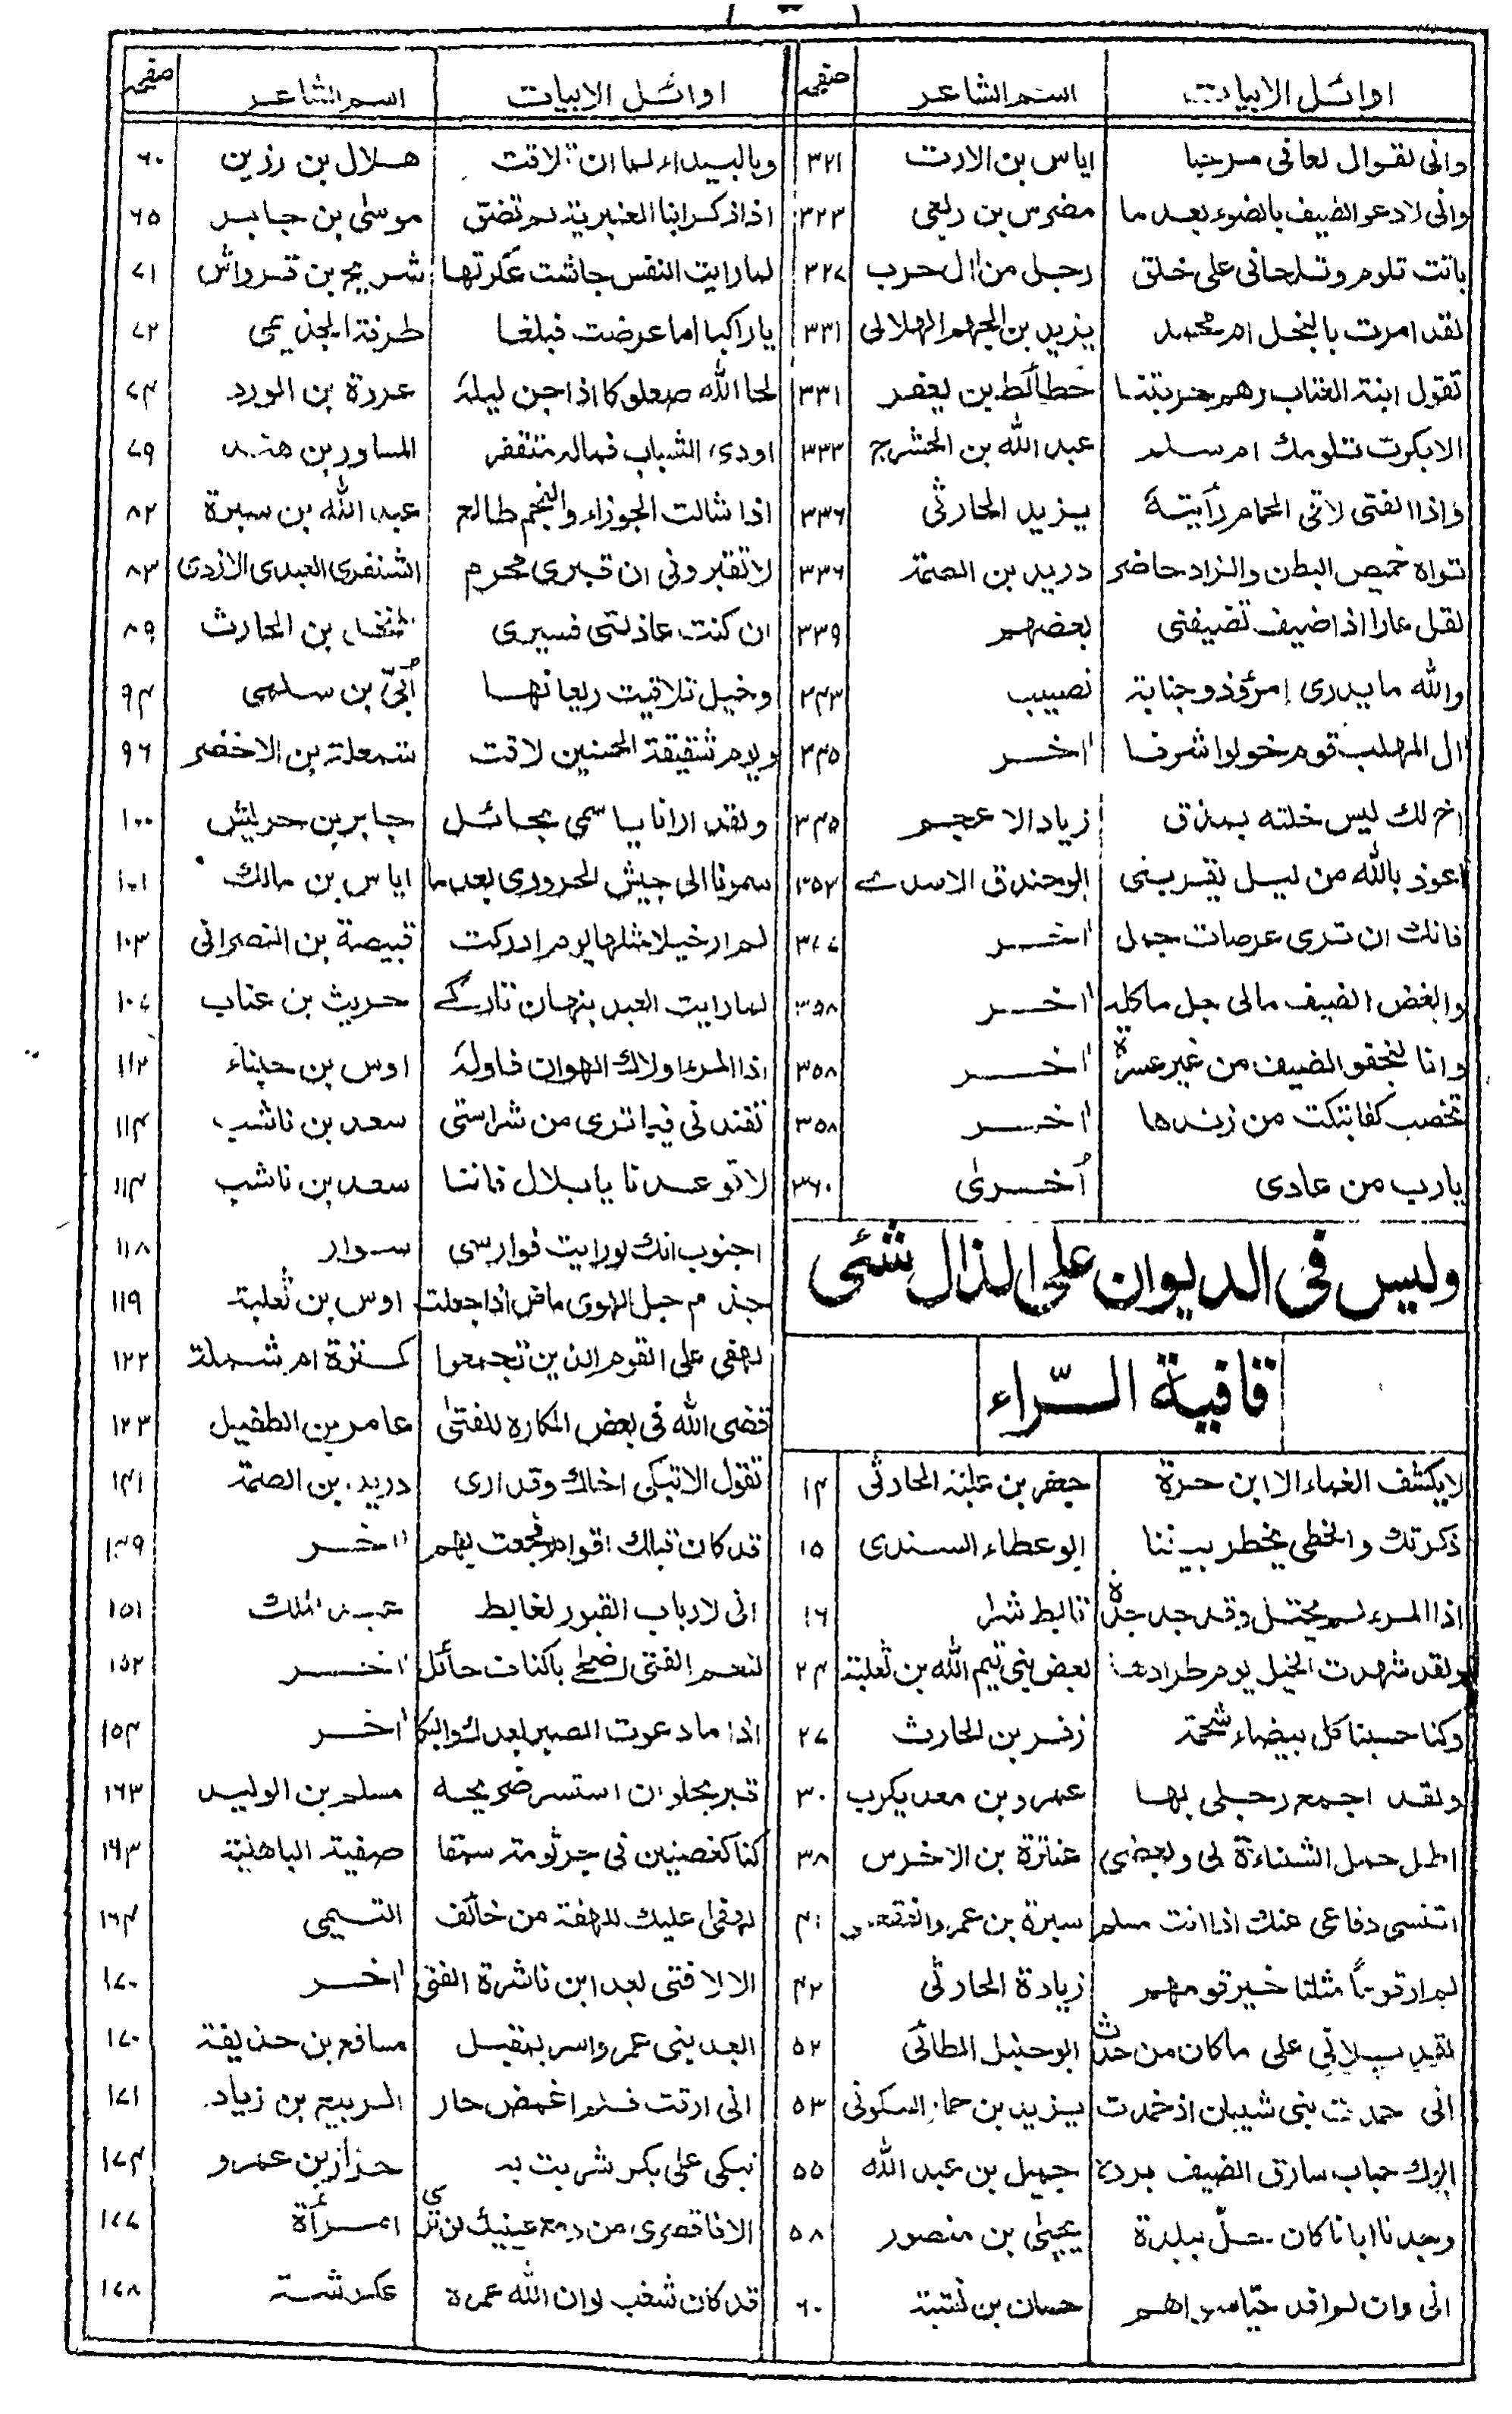 اوائل الابيات اسم الشاعر صفحه
وانى لقوال لعافى مرحبا اياس بن الارت ٣٢١
وانى لادعو الضيف بالضوء بعد ما مضرس بن ربعى ٣٢٣
باتت تلوم وتلحانى على خلق رجل من اٰل حرب ٣٢٧
لقد امرت بالبخل ام محمد يزيد بن الجهم الهلالى ٣٣١
تقول ابنة العتاب رهم حربتنا حطائط بن يعفر ٣٣١
الابكرت تلومك ام سلم عبد الله بن الحشرج ٣٣٣
واذا الفتى لاقى الحمام رأيته يزيد الحارثى ٣٣٦
تراه خميص البطن والزاد حاضر دريد بن الصمة ٣٣٦
لقل عارا اذا ضيف تضيفنى بعضهم ٣٣٩
والله ما يدرى امرؤ ذو جنابة نصيب ٣٤٣
ال المهلب قوم خولوا شرفا اٰخر ٣٤٥
اخ لك ليس خلته بمذق زياد الاعجم ٣٤٥
اعوذ بالله من ليل يقربنى ابو خندق الاسدے ٣٥٢
فانك ان ترى عرصات جمل اٰخر
وابغض الضيف مالى جل ماكله اٰخر ٣٥٨
وانا لنجفو الضيف من غير عسرة اٰخر ٣٥٨
تخصب كفا بتكت من زندها اٰخر ٣٥٨
يارب من عادى اُخرىٰ ٣٦٠
وليس فى الديوان على الذال شئى
قافية الرّاء
لا يكشف الغماء الا ابن حرة جعفر بن علبة الحارثى ١٤
ذكرتك والخطى يخطر بيننا ابو عطاء السندى ١٥
اذا المرء لم يحتل وقد جد جدّه تابط شرا ١٦
ولقد شهدت الخيل يوم طرادها بعض بنى تيم الله بن ثعلبة ٢٤
وكنا حسبنا كل بيضاء شحمة زفر بن الحارث ٢٧
ولقد اجمع رجلى بها عمرو بن معديكرب ٣٠
اطل حمل الشناءة لى وبعضى عنترة بن الاخرس ٣٨
اتنسى دفاعى عنك اذ انت مسلم سبرة بن عمرو الفقعسى ٤١
لم ار قوماً مثلنا خير قومهم زيادة الحارثى ٤٢
لقد بلانى على ماكان من حدث ابو حنبل الطائى ٥٢
انى حمدت بنى شيبان اذ خمدت يزيد بن حمان السكونى ٥٣
ابوك حباب سارق الضيف برده جميل بن عبد الله ٥٥
وجدنا ابانا كان حلّ ببلدة يحيىٰ بن منصور ٥٨
انى وان لم افد حيا سواهم حسان بن نشبة ٦٠
اوائل الابيات اسم الشاعر صفحه
وبالبيداء لما ان تلاقت هلال بن رزين ٦٠
اذا ذكر ابنا العنبرية لم تضق موسىٰ بن جابر ٦٥
لما رايت النفس جاشت عكرتها شريح بن قرواش ٧١
يا راكبا اما عرضت فبلغا طرفة الجذيمى ٧٢
لحا الله صعلوكا اذا جن ليله عروة بن الورد ٧٤
اودى الشباب فماله متقفر المساور بن هند ٧٩
اذا شالت الجوزاء والنجم طالع عبد الله بن سبرة ٨٢
لا تقبرونى ان قبرى محرم الشنفرى العبدى الازدى ٨٣
ان كنت عاذلتى فسيرى المنخل بن الحارث ٨٩
وخيل تلاقيت ريعانها اُبىّ بن سلمى ٩٤
ويوم شقيقة الحسنين لاقت شمعلة بن الاخضر ٩٦
ولقد ارانا يا سمى بحائل جابر بن حريش ١٠٠
سمونا الى جيش الحرورى بعد ما اياس بن مالك ١٠١
لم ار خيلا مثلها يوم ادركت قبيصة بن النصرانى ١٠٣
لما رايت العبد بنهان تاركے حريث بن عناب ١٠٧
اذا المرء اولاك الهوان فاوله اوس بن حبناء ١١٢
تفندنى فيما ترى من شراستى سعد بن ناشب ١١٤
لا توعدنا يا بلال فاننا سعد بن ناشب ١١٤
اجنوب انك لو رايت فوارسى سوار ١١٨
جذم حبل الهوى ماض اذا جعلت اوس بن ثعلبة ١١٩
لهفى على القوم الذين تجمعوا كنزة ام شملة ١٢٢
قضى الله فى بعض المكاره للفتىٰ عامر بن الطفيل ١٢٣
تقول الا تبكى اخاك وقد ارى دريد بن الصمة ١٤١
قد كان قبلك اقوام فجعت بهم اٰخر ١٤٩
انى لارباب القبور لغابط عبد الملك ١٥١
لنعم الفتى اضحے باكناف حائل اٰخر ١٥٢
اذا ما دعوت الصبر بعدك والبكا اٰخر ١٥٤
قبر بحلوان استسر ضريحه مسلم بن الوليد ١٦٣
كنا كغصنين فى جرثومة سمقا صفية الباهلية ١٦٣
لهفى عليك للهفة من خائف التيمى ١٦٤
الا لا فتى بعد ابن ناشرة الفتى اٰخر ١٧٠
ابعد بنى عمرو اسر بمقبل مسافع بن حذيفة ١٧٠
انى ارقت فلم اغمض حار الربيع بن زياد ١٧١
نبكى على بكر شربت به حزاز بن عمرو ١٧٤
الا فاقصرى من دمع عينيك لن ترى امرأة ١٧٧
قد كان شغب لو ان الله عمره عكرشة ١٧٨